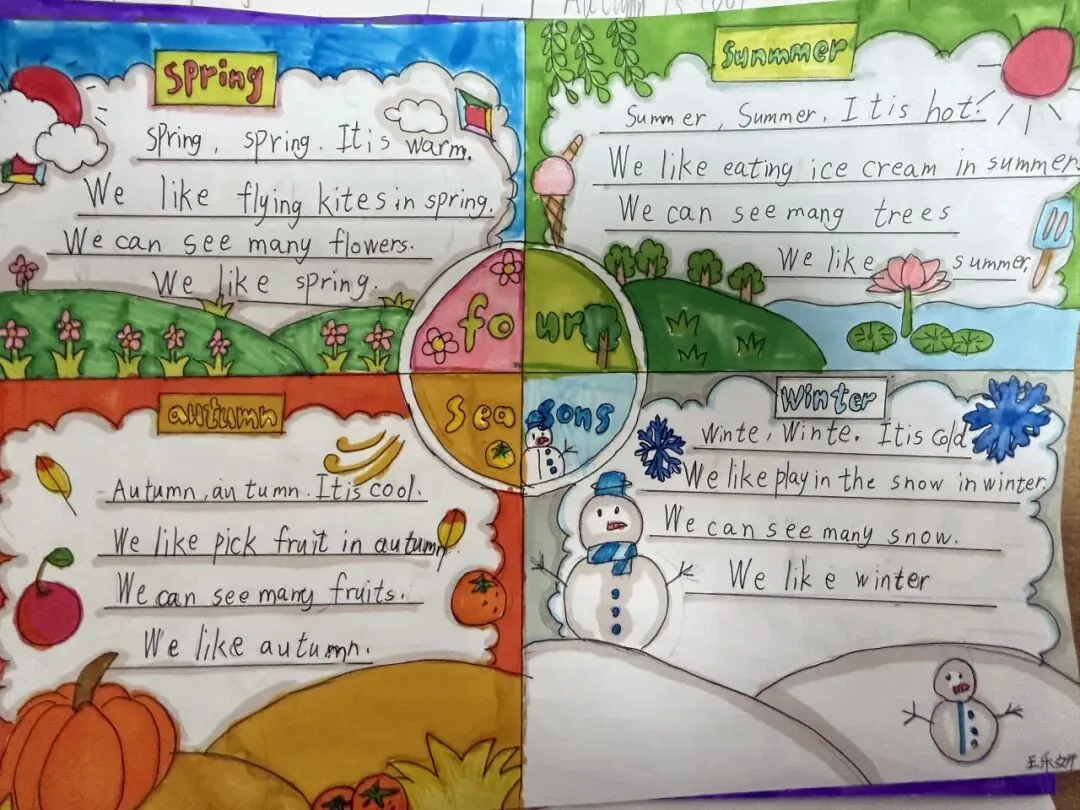 Autumn is cool
spring
spring, spring. It is warm.
We like flying kites in spring.
We can see many flowers.
We like spring.
Sunmmer
Summer, Summer. It is hot!
We like eating ice cream in summer
We can see mang trees
We like summer,
four
seasons
autumn
Autumn, au tumn. It is cool.
We like pick fruit in autumn.
We can see many fruits.
We like autumn.
winter
winte, Winte. It is cold
We like play in the snow in winter.
We can see many snow.
We like winter